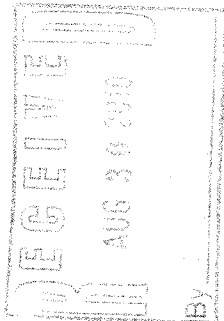 RECEIVED
AUG 30 2010
By